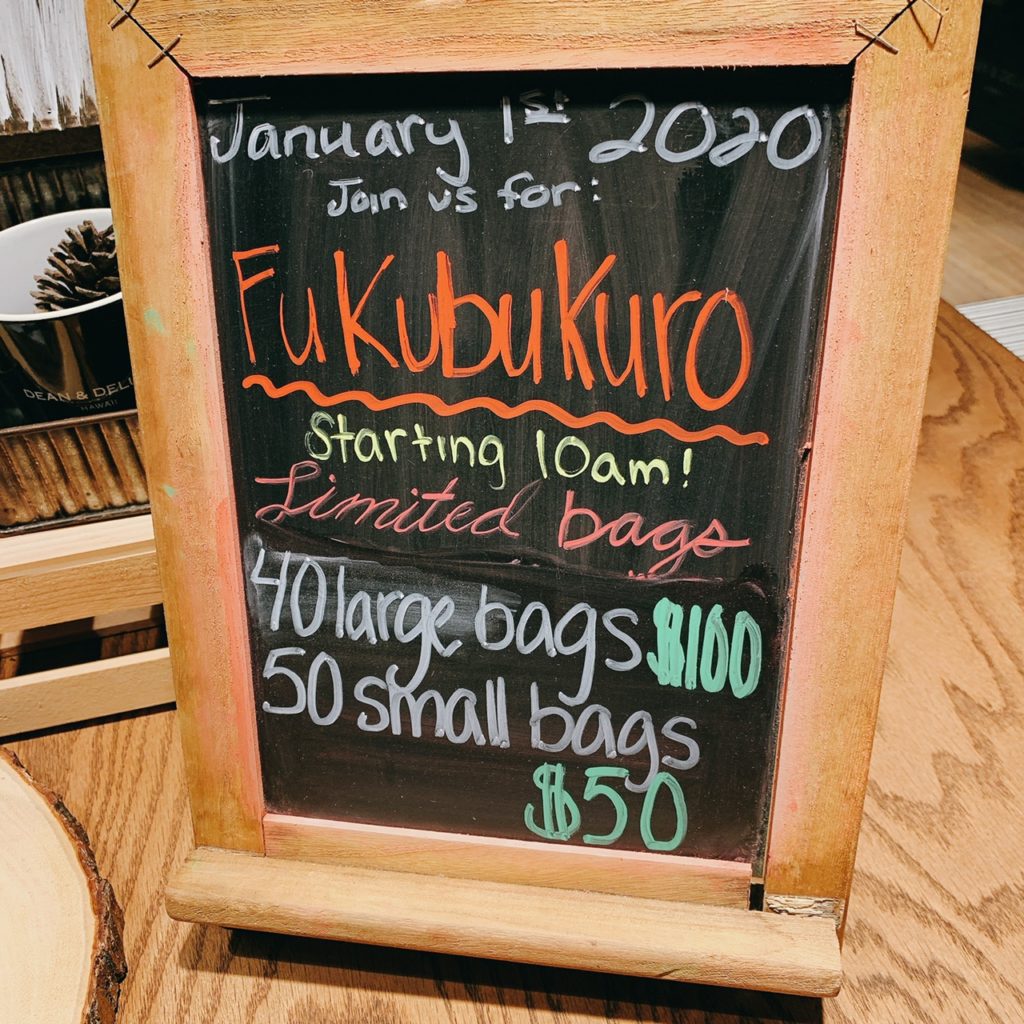 January 1st 2020
Join us for:
Fukubukuro
Starting 10am!
Limited bags
40 large bags $100
50 small bags
$50
DEAN & DEL
HAWAII